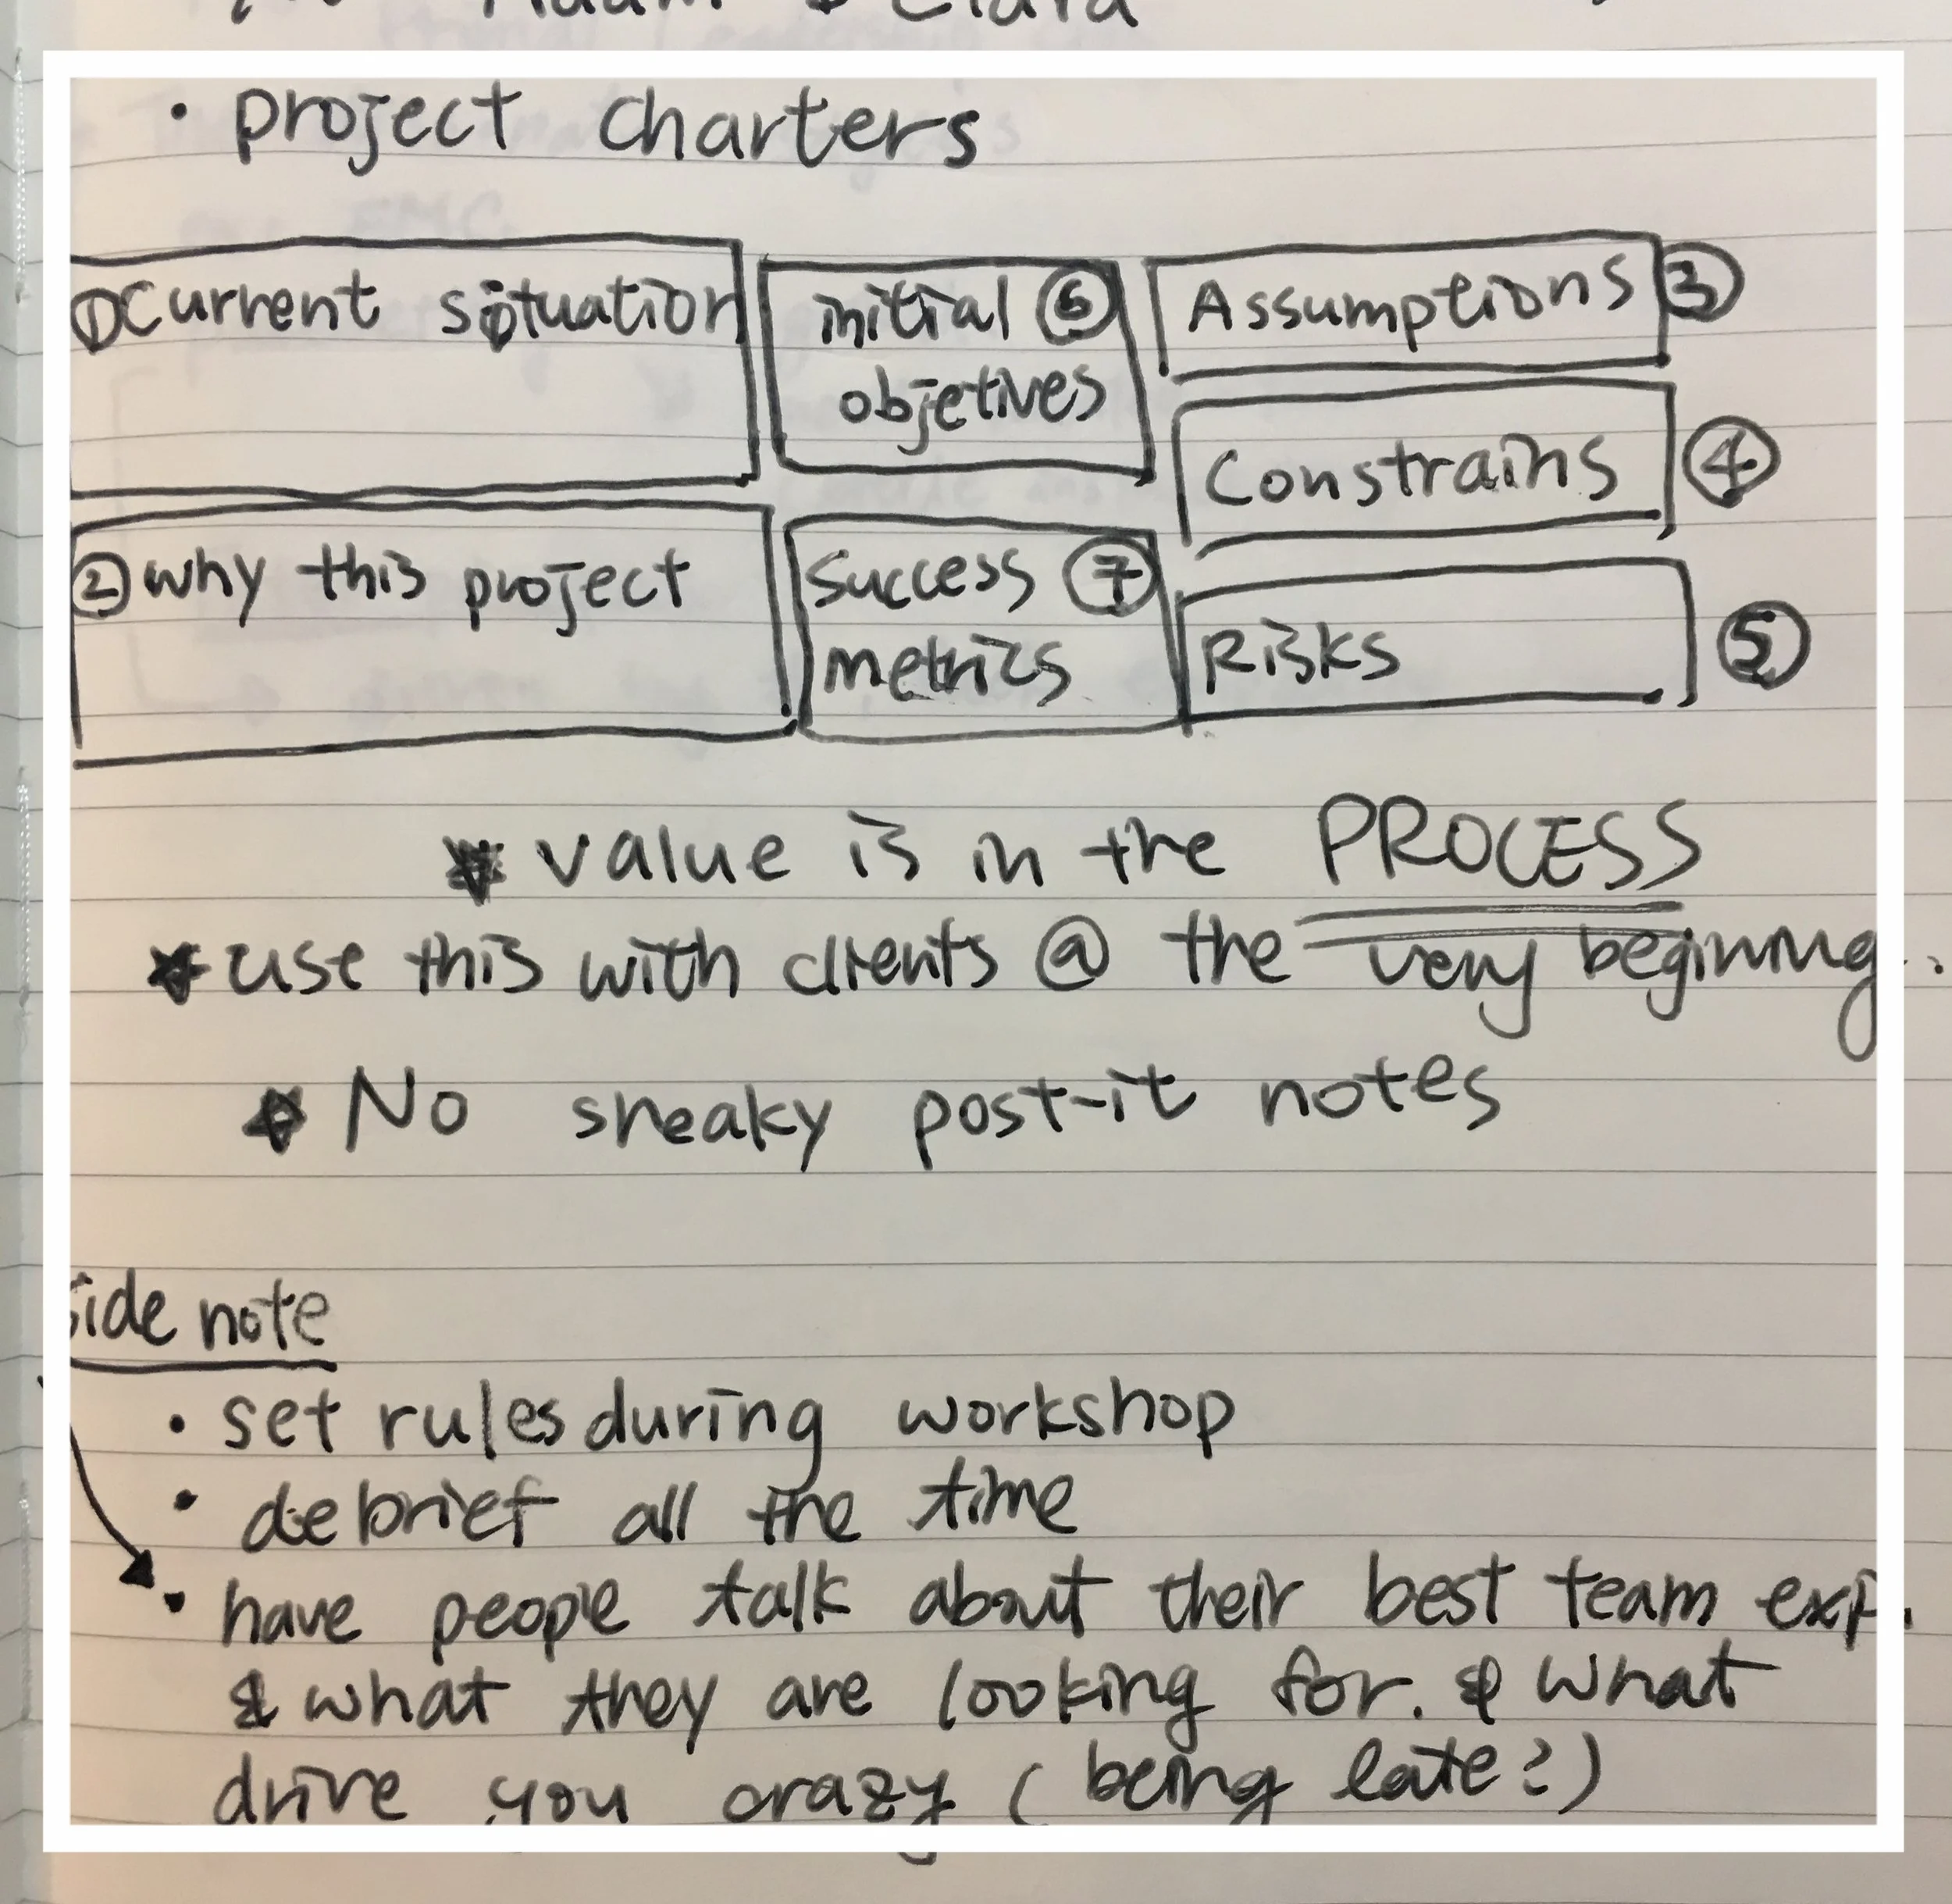 Adam & Clara
• project charters
① Current situation
initial ⑥
objetives
Assumptions ③
Constrains ④
② why this project
Success ⑦
metrics
Risks ⑤
★ value is in the PROCESS
★ use this with clients @ the very beginning..
★ No sneaky post-it notes
side note
• set rules during workshop
• debrief all the time
• have people talk about their best team exp.
& what they are looking for. & what
drive you crazy (being late?)